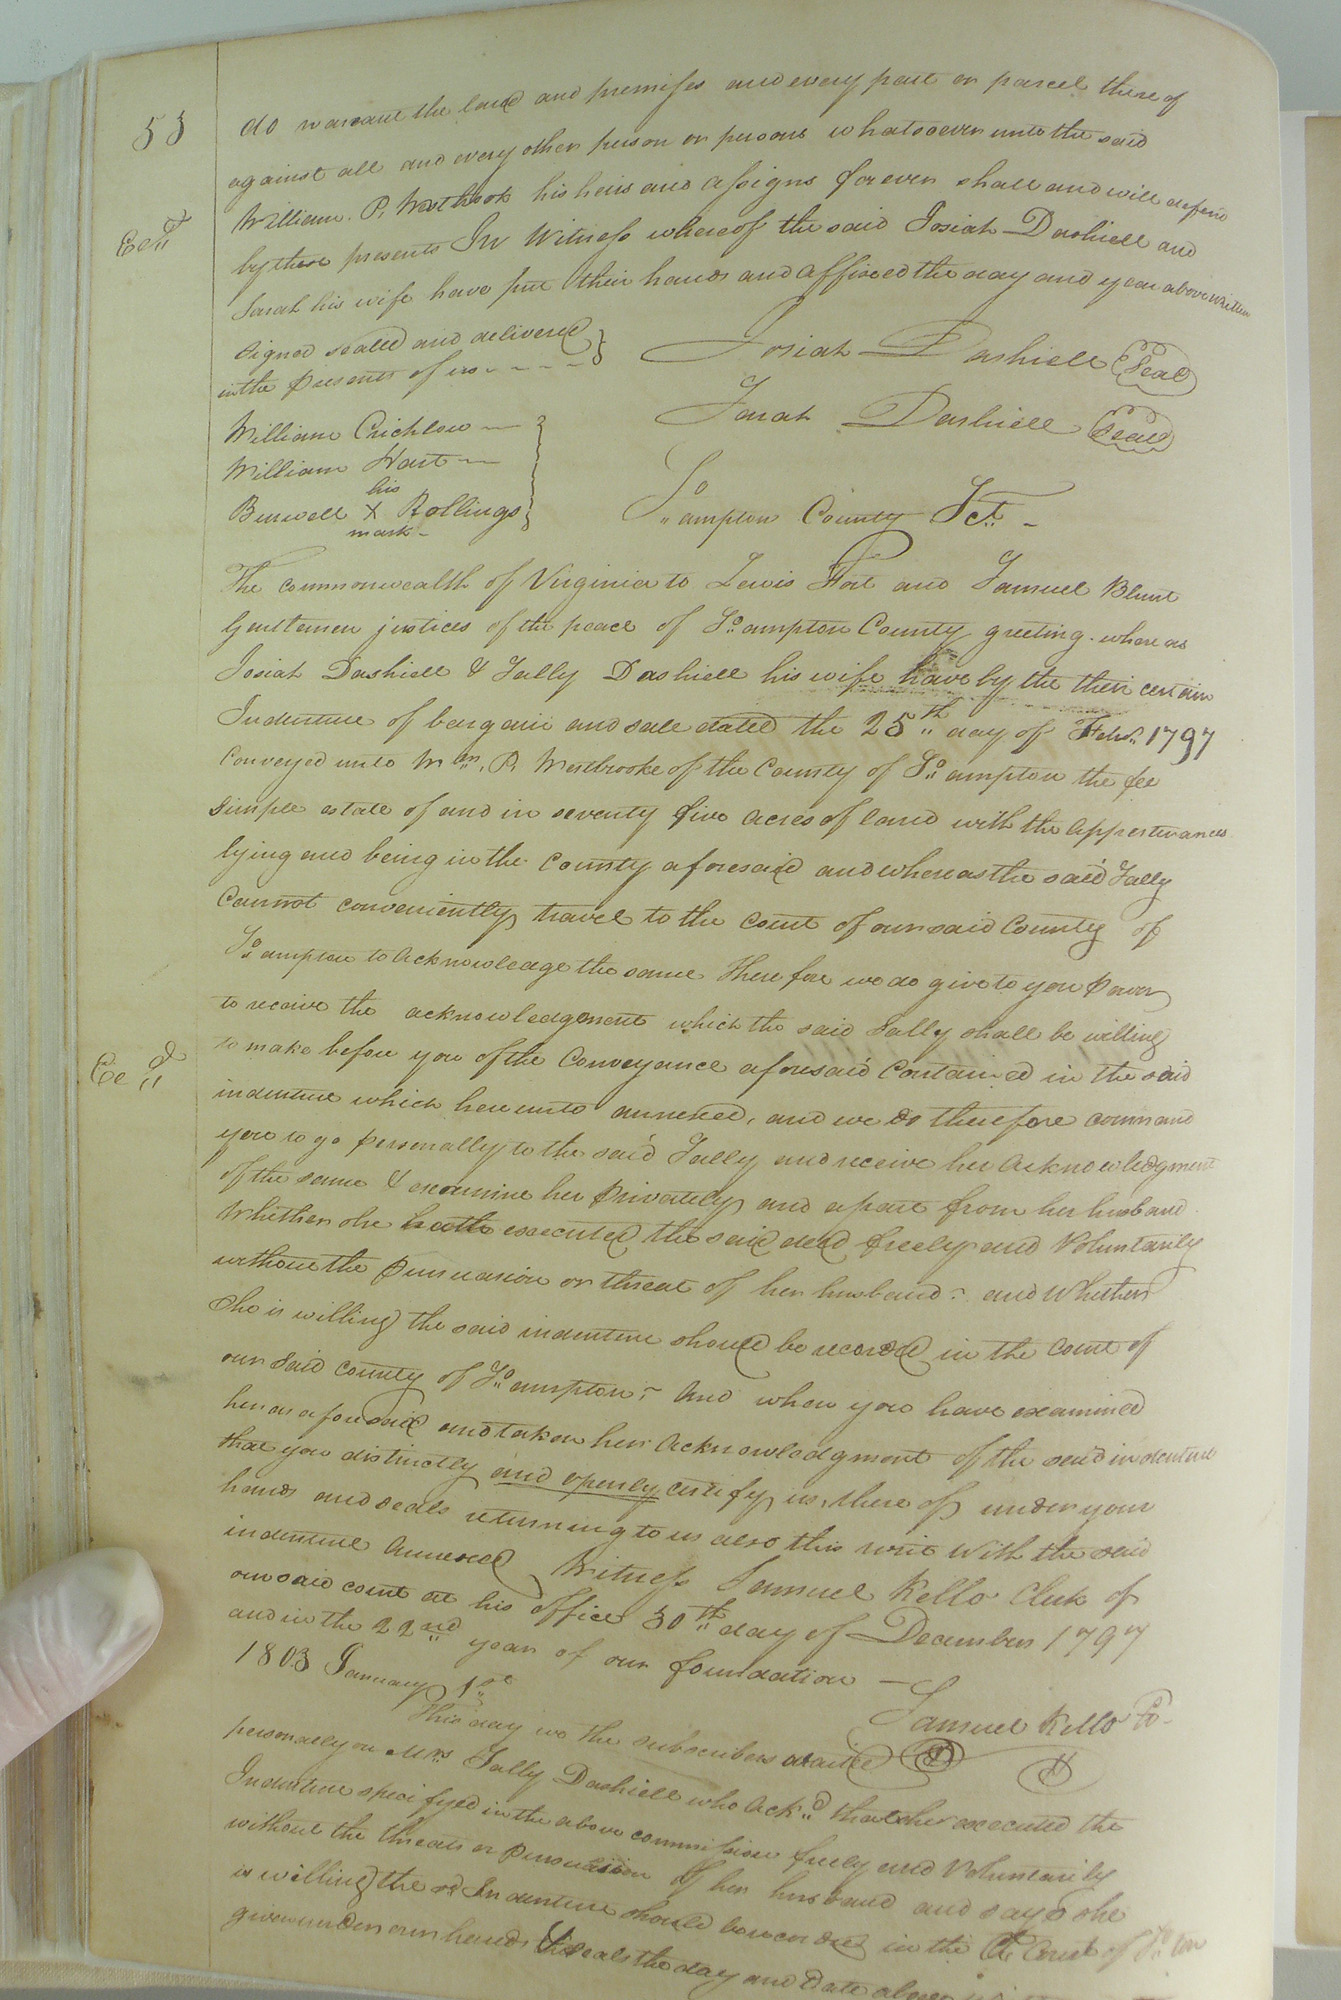 53
do warrant the land and premises and every part or parcel there of
against all and every other person or persons whatsoever unto the said
William. P. Westbrook his heirs and assigns forever shall and will defend
Ex.d
by these presents In Witness whereof the said Josiah Dashiell and
Sarah his wife have put their hands and affixed the day and year above written
signed sealed and delivered
in the presents of us - - - -
Josiah Dashiell Seal
Sarah Dashiell Seal
William Crichlow
William Hart
his
Burwell X Rollings
mark
So
ampton County Sct
The commonwealth of Virginia to Lewis Fort and Samuel Blunt
Gentlemen justices of the peace of So ampton County greeting. where as
Josiah Dashiell & Sally Dashiell his wife have by the their certain
Indenture of bargain and sale dated the 25th day of Feb. 1797
Conveyed unto Wm. P. Westbrooke of the County of So ampton the fee
simple estate of and in seventy five acres of land with the appertenances
lying and being in the County aforesaid and whereas the said Sally
Cannot conveniently travel to the Court of our said County of
So ampton to acknowledge the same Therefore we do give to you Power
to receive the acknowledgement which the said Sally shall be willing
to make before you of the Conveyance aforesaid Contained in the said
Ex.d
indenture which hereunto annexed, and we do therefore command
you to go personally to the said Sally and receive her acknowledgment
of the same & examine her privately and apart from her husband
Whether she hath executed the said deed freely and Voluntarily
without the Persuasion or threat of her husband? and Whether
she is willing the said indenture should be recorded in the Court of
our said County of So ampton? And when you have examined
her as aforesaid and taken her acknowledgment of the said indenture
that you distinctly and openly certify us, there of under your
hands and seals returning to us also this writ With the said
indenture annexed, Witness Samuel Kello Clerk of
our said court at his office 30th day of December 1797
and in the 22nd year of our foundation
Samuel Kello Co.
1803 January 1st
This day we the subscribers waited
personally on Mrs Sally Dashiell who ack.d that she executed the
Indenture specifyed in the above commission freely and Voluntarily
without the threats or persuasion of her husband and says she
is willing the sd Indenture should be recorded in the Court of So
given under our hands & seals the day and date above